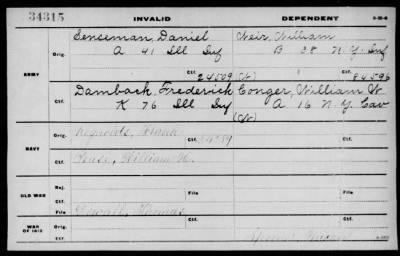 34315 INVALID DEPENDENT
Senseman, Daniel Weir, William
Orig. A 41 Ill Inf B 38 N.Y. Inf
Ctf. 24509 (W) Ctf. 84596
ARMY
Dambach, Frederick Conger, William W
K 76 Ill Inf A 16 N.Y. Cav
Ctf. (W)
Orig. Reynolds, Frank Ctf.
NAVY
Ctf. William H.
OLD WAR Rej. File
Ctf. File
File Thomas
WAR OF 1812 Ctf. Ctf.